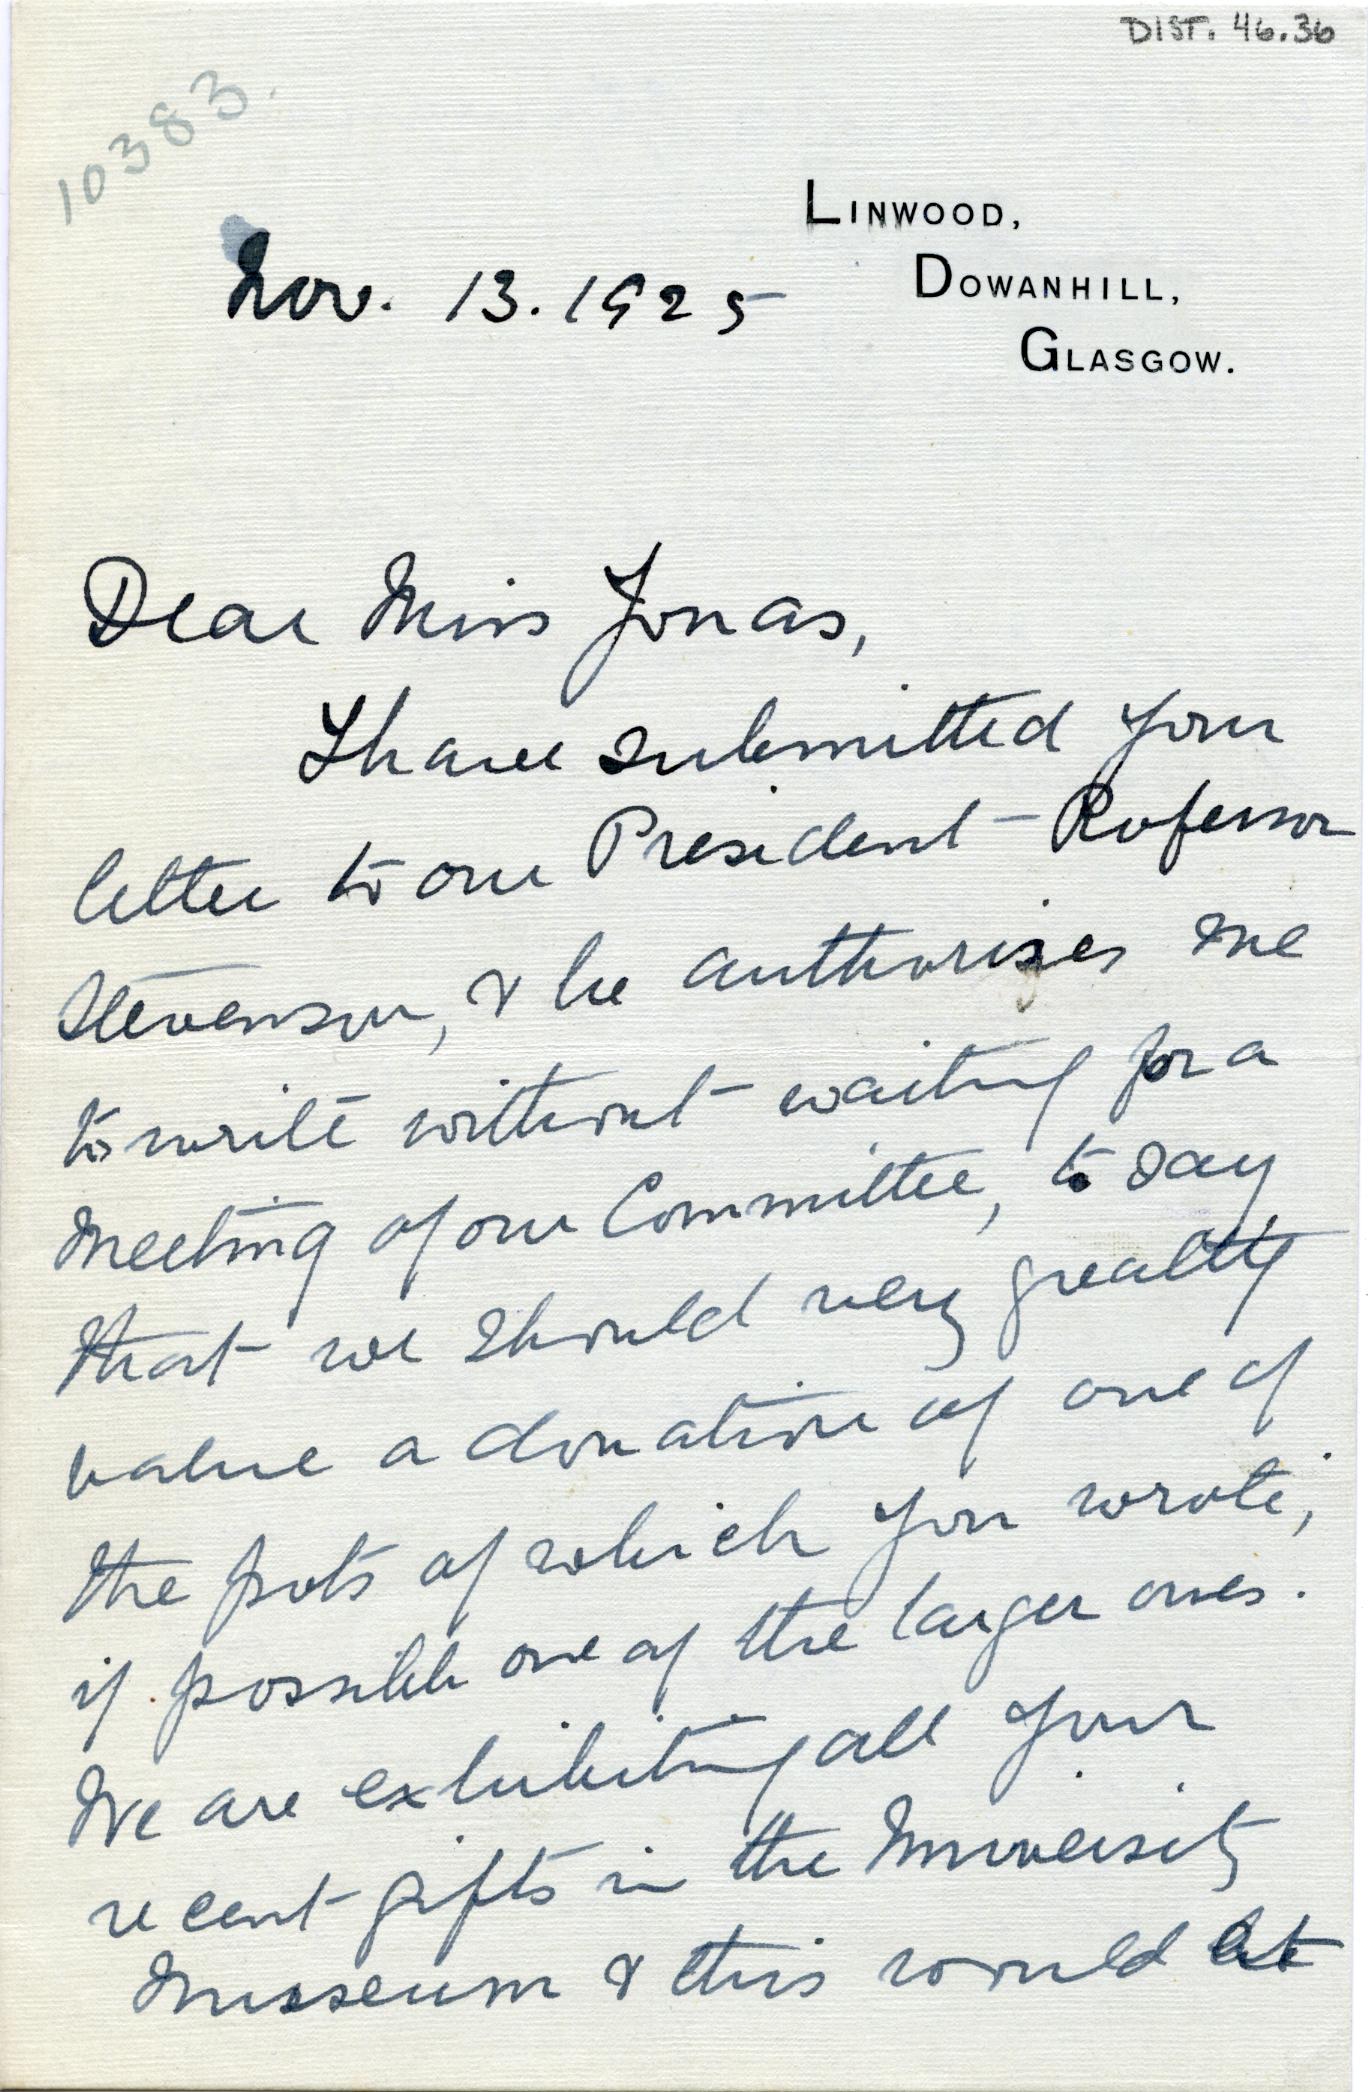 DIST. 46.36
10383.
LINWOOD,
DOWANHILL,
GLASGOW.
Nov. 13. 1925
Dear Miss Jonas,
I have submitted your
letter to our President - Professor
Stevenson, & he authorises me
to write without waiting for a
meeting of our Committee, to say
that we should very greatly
value a donation of one of
the pots of which you wrote;
if possible one of the larger ones.
We are exhibiting all your
recent gifts in the University
Museum & this would